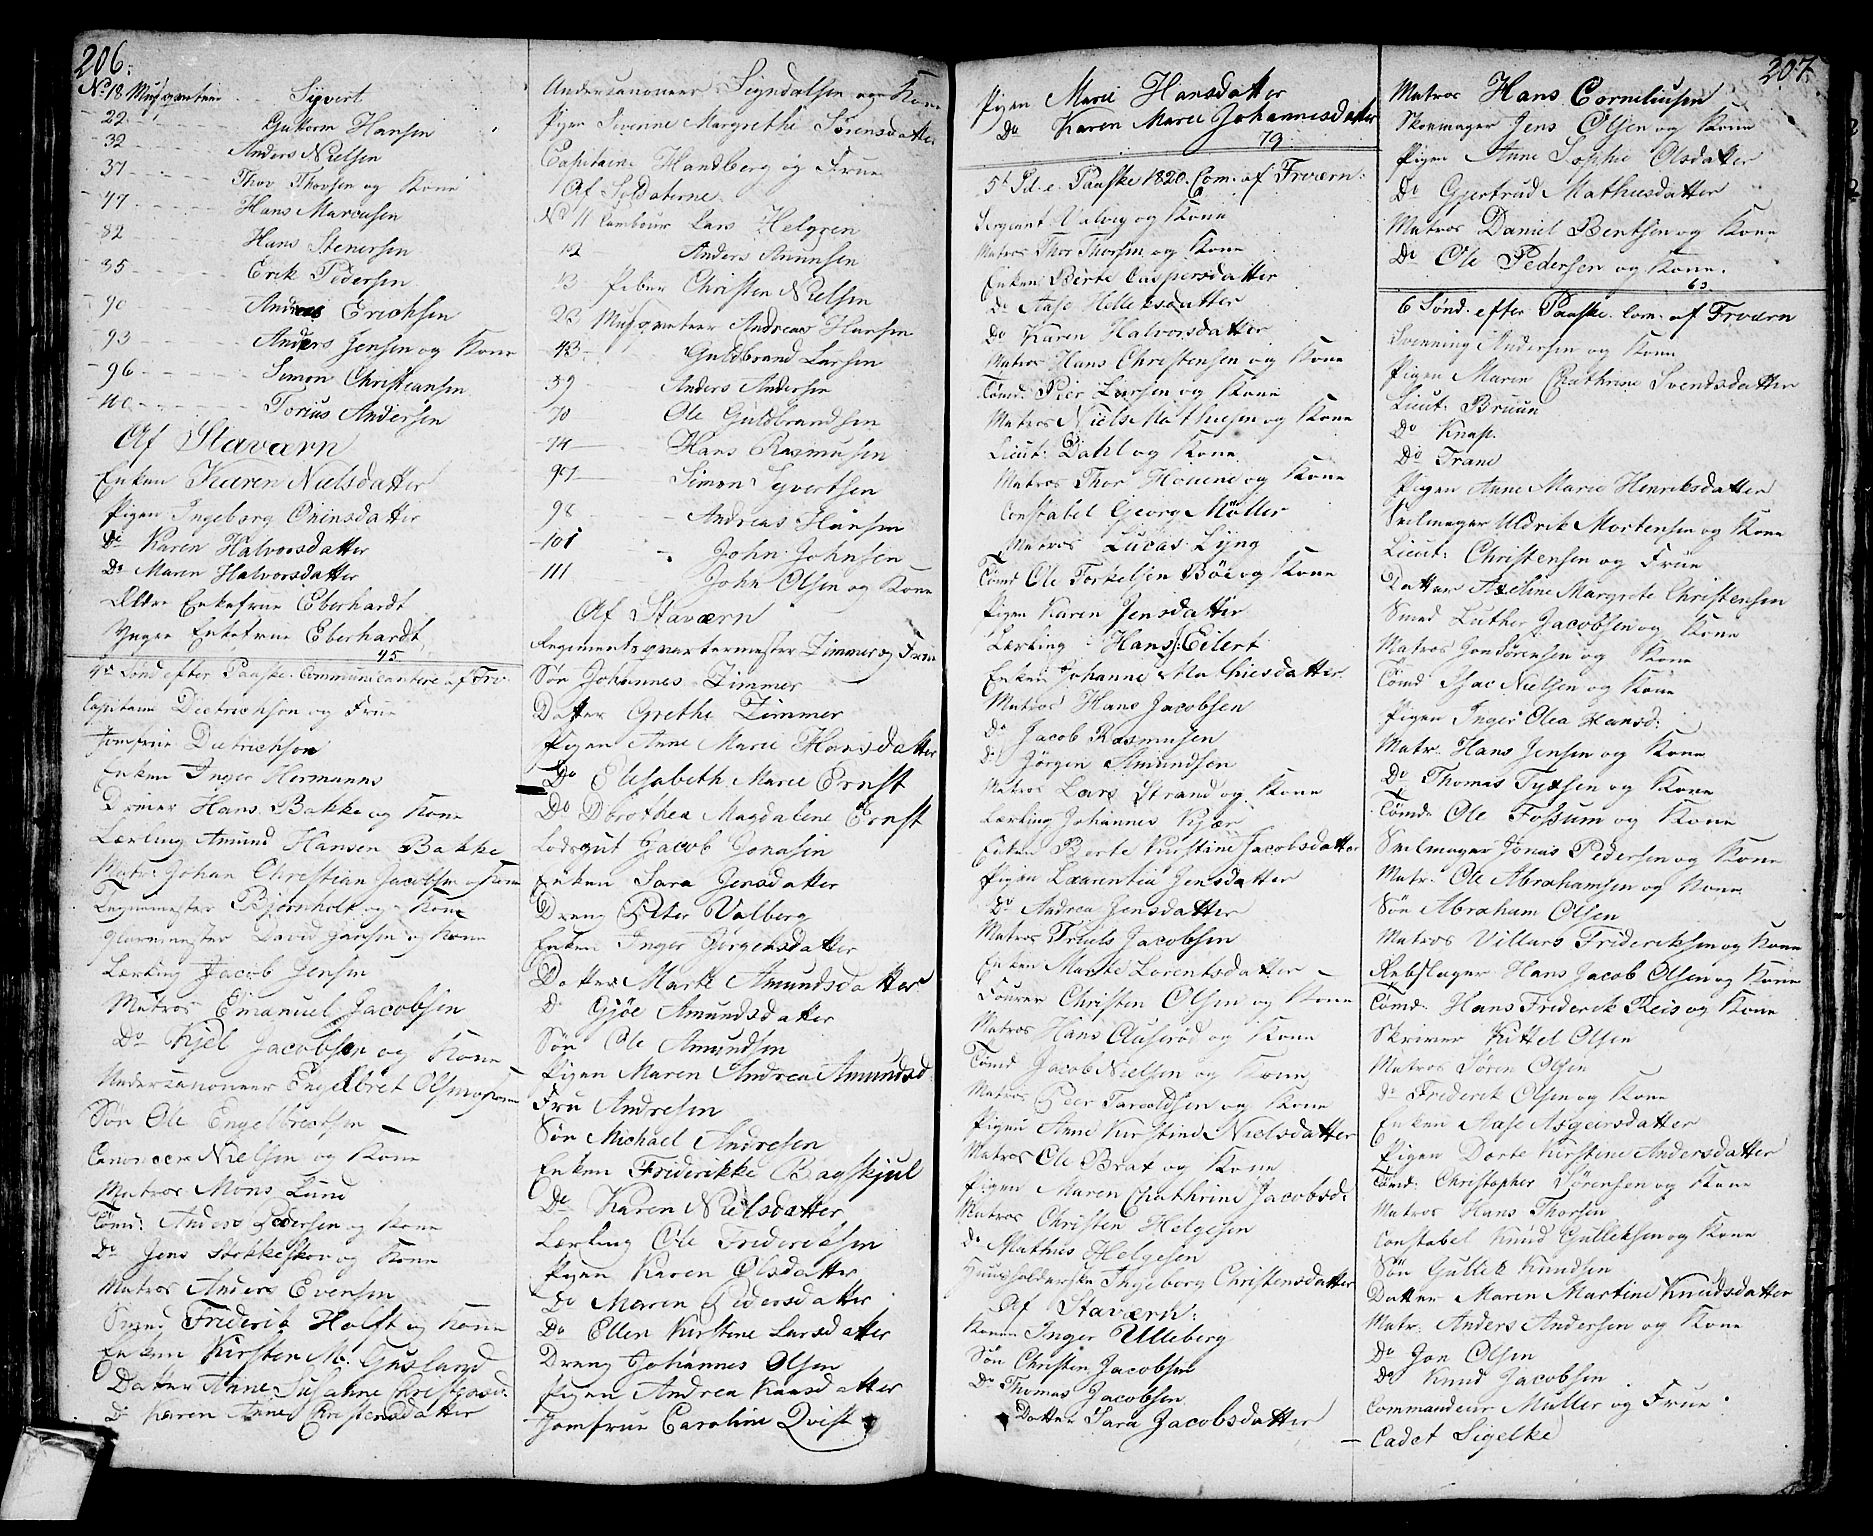 206.
No 18 Musqueteer - - Syvert
22 - - - Guttorm Hansen
32 - - - Anders Nielsen
37 - - - Thor Thorsen og Kone
47 - - - Hans Marcusen
82 - - - Hans Stenersen
85 - - - Erik Pedersen
90 - - - Andreas Erichsen
93 - - - Anders Jensen og Kone
96 - - - Simon Christiansen
100 - - - Torius Andersen
Af Staværn
Enken Karen Nielsdatter
Pigen Ingeborg Oninsdatter
Do Karen Halvorsdatter
Do Maren Halvorsdatter
Ældre Enkefrue Eberhardt
Yngre Enkefrue Eberhardt
45
4de Sönd efter Paaske Communicantere af Frv.
Capitain Dietrichson og Frue
Jomfrue Dietrichson
Enken Inger Hermanns
Dreier Hans Bakke og Kone
Lærling Amund Hansen Bakke
Matr: Johan Christian Jacobsen og Kone
Tegnemester Bjernholt og Kone
Glarmester David Jansen og Kone
Lærling Jacob Jensen
Matros Emanuel Jacobsen
Do Kjel Jacobsen og Kone
Undercanoneer Engelbret Olsen og Kone
Sön Ole Engelbrechsen
Canoneer Nielsen og Kone
Matros Mons Lund
Tömd: Anders Pedersen og Kone
Do Jens Stokkeskov og Kone
Matros Anders Evensen
Smed Friderik Holst og Kone
Enken Kirsten M. Gusland
Datter Anne Susanne
Do Karen Anne Christensdatter
Undercanoneer Signdalsen og Kone
Pigen Severine Margrethe Sörensdatter
Capitain Handberg og Frue
Af Soldaterne
No 11 Tambour Lars Helgren
12 - Anders Amunsen
13 Piber Christen Nielsen
23 Musqueteer Andreas Hansen
43 - Guldbrand Larsen
59 - Anders Andersen
70 - Ole Guldbrandsen
74 - Hans Rasmusen
97 - Simon Syvertsen
98 - Andreas Hansen
101 - John Johnsen
111 John Olsen og Kone
Af Staværn
Regimentsquartermester Zimmer og Frue
Sön Johannes Zimmer
Datter Grethe Zimmer
Pigen Anne Marie Hansdatter
Do Elisabeth Marie Ernst
Do Dorothea Magdalene Ernst
Lodsgut Jacob Jonasen
Enken Sara Jensdatter
Dreng Peter Valberg
Enken Inger Jörgensdatter
Datter Marte Amundsdatter
Do Gjöe Amundsdatter
Sön Ole Amundsen
Pigen Maren Andrea Amundsd.
Fru Andresen
Sön Michael Andresen
Enken Friderikke Bagskjul
Do Karen Nielsdatter
Lærling Ole Fridericksen
Pigen Karen Olsdatter
Do Maren Pedersdatter
Do Ellen Kirstine Larsdatter
Dreng Johannes Olsen
Pigen Andrea Hansdatter
Jomfrue Caroline Qvist
Pigen Marie Hansdatter
Do Karen Marie Johannesdatter
79
5te Sd. e. Paaske 1820. Com. af Frværn:
Sergeant Valvig og Kone
Matros Thor Thorsen og Kone
Enken Börte Caspersdatter
Do Aase Helleksdatter
Do Karen Halvorsdatter
Matros Hans Christensen og Kone
Tömd: Peer Larsen og Kone
Matros Niels Mathiesen og Kone
Lieut: Dahl og Kone
Matros Thor Honene og Kone
Constabel Georg Möller
Matros Lucas Lyng
Tömd Ole Torkelsen Böe og Kone
Pigen Karen Jensdatter
Lærling Hans Eilert
Enken Johanne Mathiesdatter
Matros Hans Jacobsen
Do Jacob Rasmusen
Do Jörgen Amundsen
Matros Lars Strand og Kone
Lærling Johannes Kjær
Enken Berte Kirstine Jacobsdatter
Pigen Laurentia Jensdatter
Do Andrea Jensdatter
Matros Truels Jacobsen
Enken Marte Lorentsdatter
Fourer Christen Olsen og Kone
Matros Hans Auseröd og Kone
Tömd Jacob Nielsen og Kone
Matros Peer Taroldsen og Kone
Pigen Anne Kirstine Nielsdatter
Matros Ole Brat og Kone
Pigen Maren Cathrine Jacobsd:
Matros Christen Helgesen
Do Mathies Helgesen
Huusholderske Ingeborg Christensdatter
Af Staværn:
Konen Inger Ulleberg
Sön Christen Jacobsen
Do Thomas Jacobsen
Datter Sara Jacobsdatter
207.
Matros Hans Corneliusen
Skomager Jens Olsen og Kone
Pigen Anne Sophie Olsdatter
Do Gjertrud Mathiesdatter
Matros Daniel Bentsen og Kone
Do Ole Pedersen og Kone.
63
6 Sönd. efter Paaske. Com. af Frværn
Svenning Andersen og Kone
Pigen Maren Cathrine Svendsdatter
Lieut: Bruun
Do Knap.
Do Trane
Pigen Anne Marie Henriksdatter
Seilmager Uldrik Mortensen og Kone
Lieut: Christensen og Frue
Datter Axeline Margrete Christensen
Smed Luther Jacobsen og Kone
Matros Jon Sörensen og Kone
Tömd Isac Nielsen og Kone
Pigen Inger Olea Hansd:
Matr. Hans Jensen og Kone
Do Thomas Tyttsen og Kone
Tömd: Ole Fossum og Kone
Seilmager Jonas Pedersen og Kone
Matr: Ole Abrahamsen og Kone
Sön Abraham Olsen
Matros Villars Frideriksen og Kone
Rebslager Hans Jacob Olsen og Kone
Tömd: Hans Friderik Reis og Kone
Skriver Kittel Olsen
Matros Sören Olsen
Do Friderik Olsen og Kone
Enken Aase Asgeirsdatter
Pigen Dorte Kirstine Andersdatter
Tömd: Christopher Sörensen og Kone
Matros Hans Thorsen
Constabel Knud Gulleksen og Kone
Sön Gullek Knudsen
Datter Maren Martine Knudsdatter
Matr: Anders Andersen og Kone
Do Jon Olsen
Do Knud Jacobsen
Commandeur Müller og Frue
Cadet Sigelke